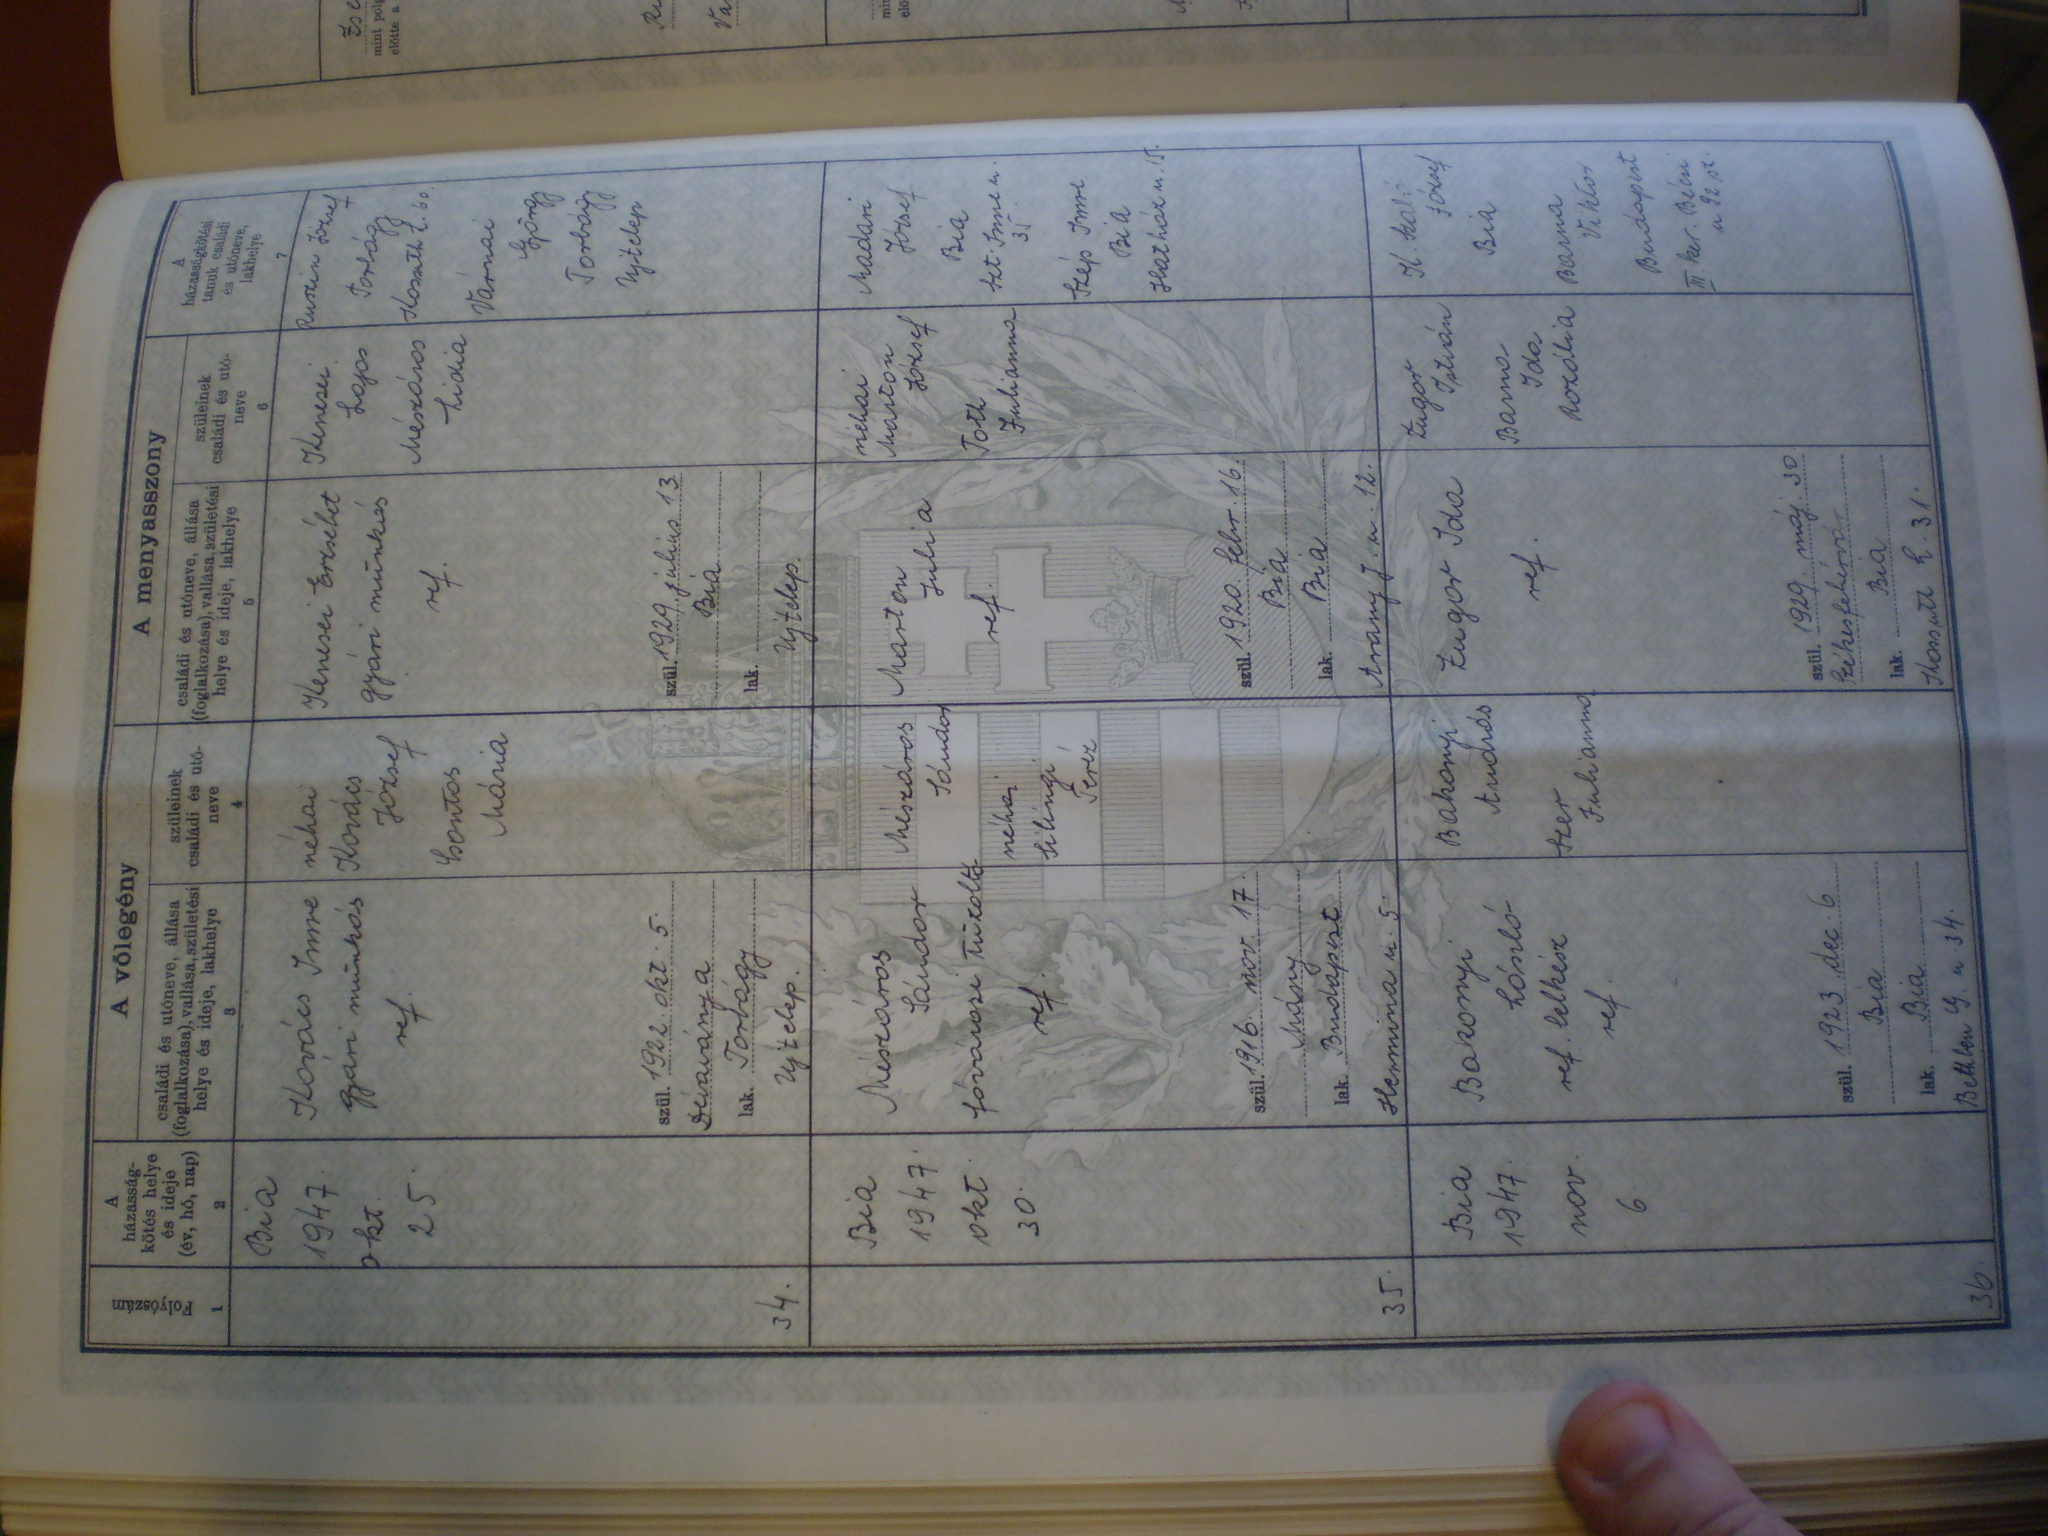 A vőlegény
A menyasszony
Folyószám
1
A
házasság-
kötés helye
és ideje
(év, hó, nap)
2
családi és utóneve, állása
(foglalkozása), vallása, születési
helye és ideje, lakhelye
3
szüleinek
családi és utó-
neve
4
családi és utóneve, állása
(foglalkozása), vallása, születési
helye és ideje, lakhelye
5
szüleinek
családi és utó-
neve
6
A
házasságkötési
tanuk családi
és utóneve,
lakhelye
7
34.
Bia
1947
okt.
25.
Kovács Imre
gyári munkás
ref.
szül. 1922. okt. 5
Dévaványa
lak. Torbágy
Ujtelep.
néhai
Kovács
József
Csontos
Mária
Kenesei Erzsébet
gyári munkás
ref.
szül. 1929. július 13.
Bia
lak.
Ujtelep.
Kenesei
Lajos
Mészáros
Lidia
József
Torbágy
Kossuth L. 60.
Várnai
György
Torbágy
Ujtelep
35.
Bia
1947.
okt.
30.
Mészáros
Sándor
fővárosi tűzoltó
ref.
szül. 1916. nov. 17.
Mány
lak. Budapest
Hermina u. 5.
Mészáros
Sándor
néhai
Silingi
Teréz
Marton
Julia
ref.
szül. 1920. febr. 16.
Bia
lak. Bia
Arany J. u. 12.
néhai
Marton
József
Tóth
Julianna
Madari
József
Bia
Szt. Imre u.
31
Szép Imre
Bia
Hatház u. 15.
36.
Bia
1947.
nov.
6.
Bakonyi
László
ref. lelkész
ref.
szül. 1923. dec. 6
Bia
lak. Bia
Bethlen G. u 34.
Bakonyi
András
Szer
Julianna
Zugor Ida
ref.
szül. 1929. máj. 30.
Székesfehérvár
lak. Bia
Kossuth L. 31.
Zugor
István
Barna
Ida
Rozália
József
Bia
Barna
Viktor
Budapest
III ker. Bécsi
u 92 sz.